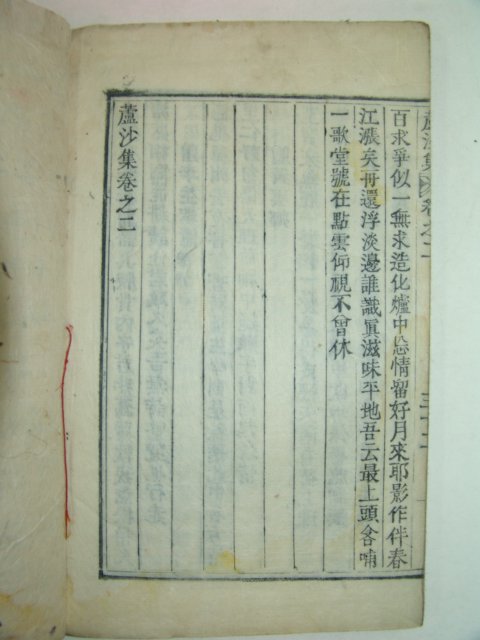 蘆沙集 卷之二
三十二
百求爭似一無求造化爐中恣情留好月來耶影作伴春
江漲矣舟還浮淡邊誰識眞滋味平地吾云最上頭含哺
一歌堂號在點雲仰視不曾休
蘆沙集卷之二